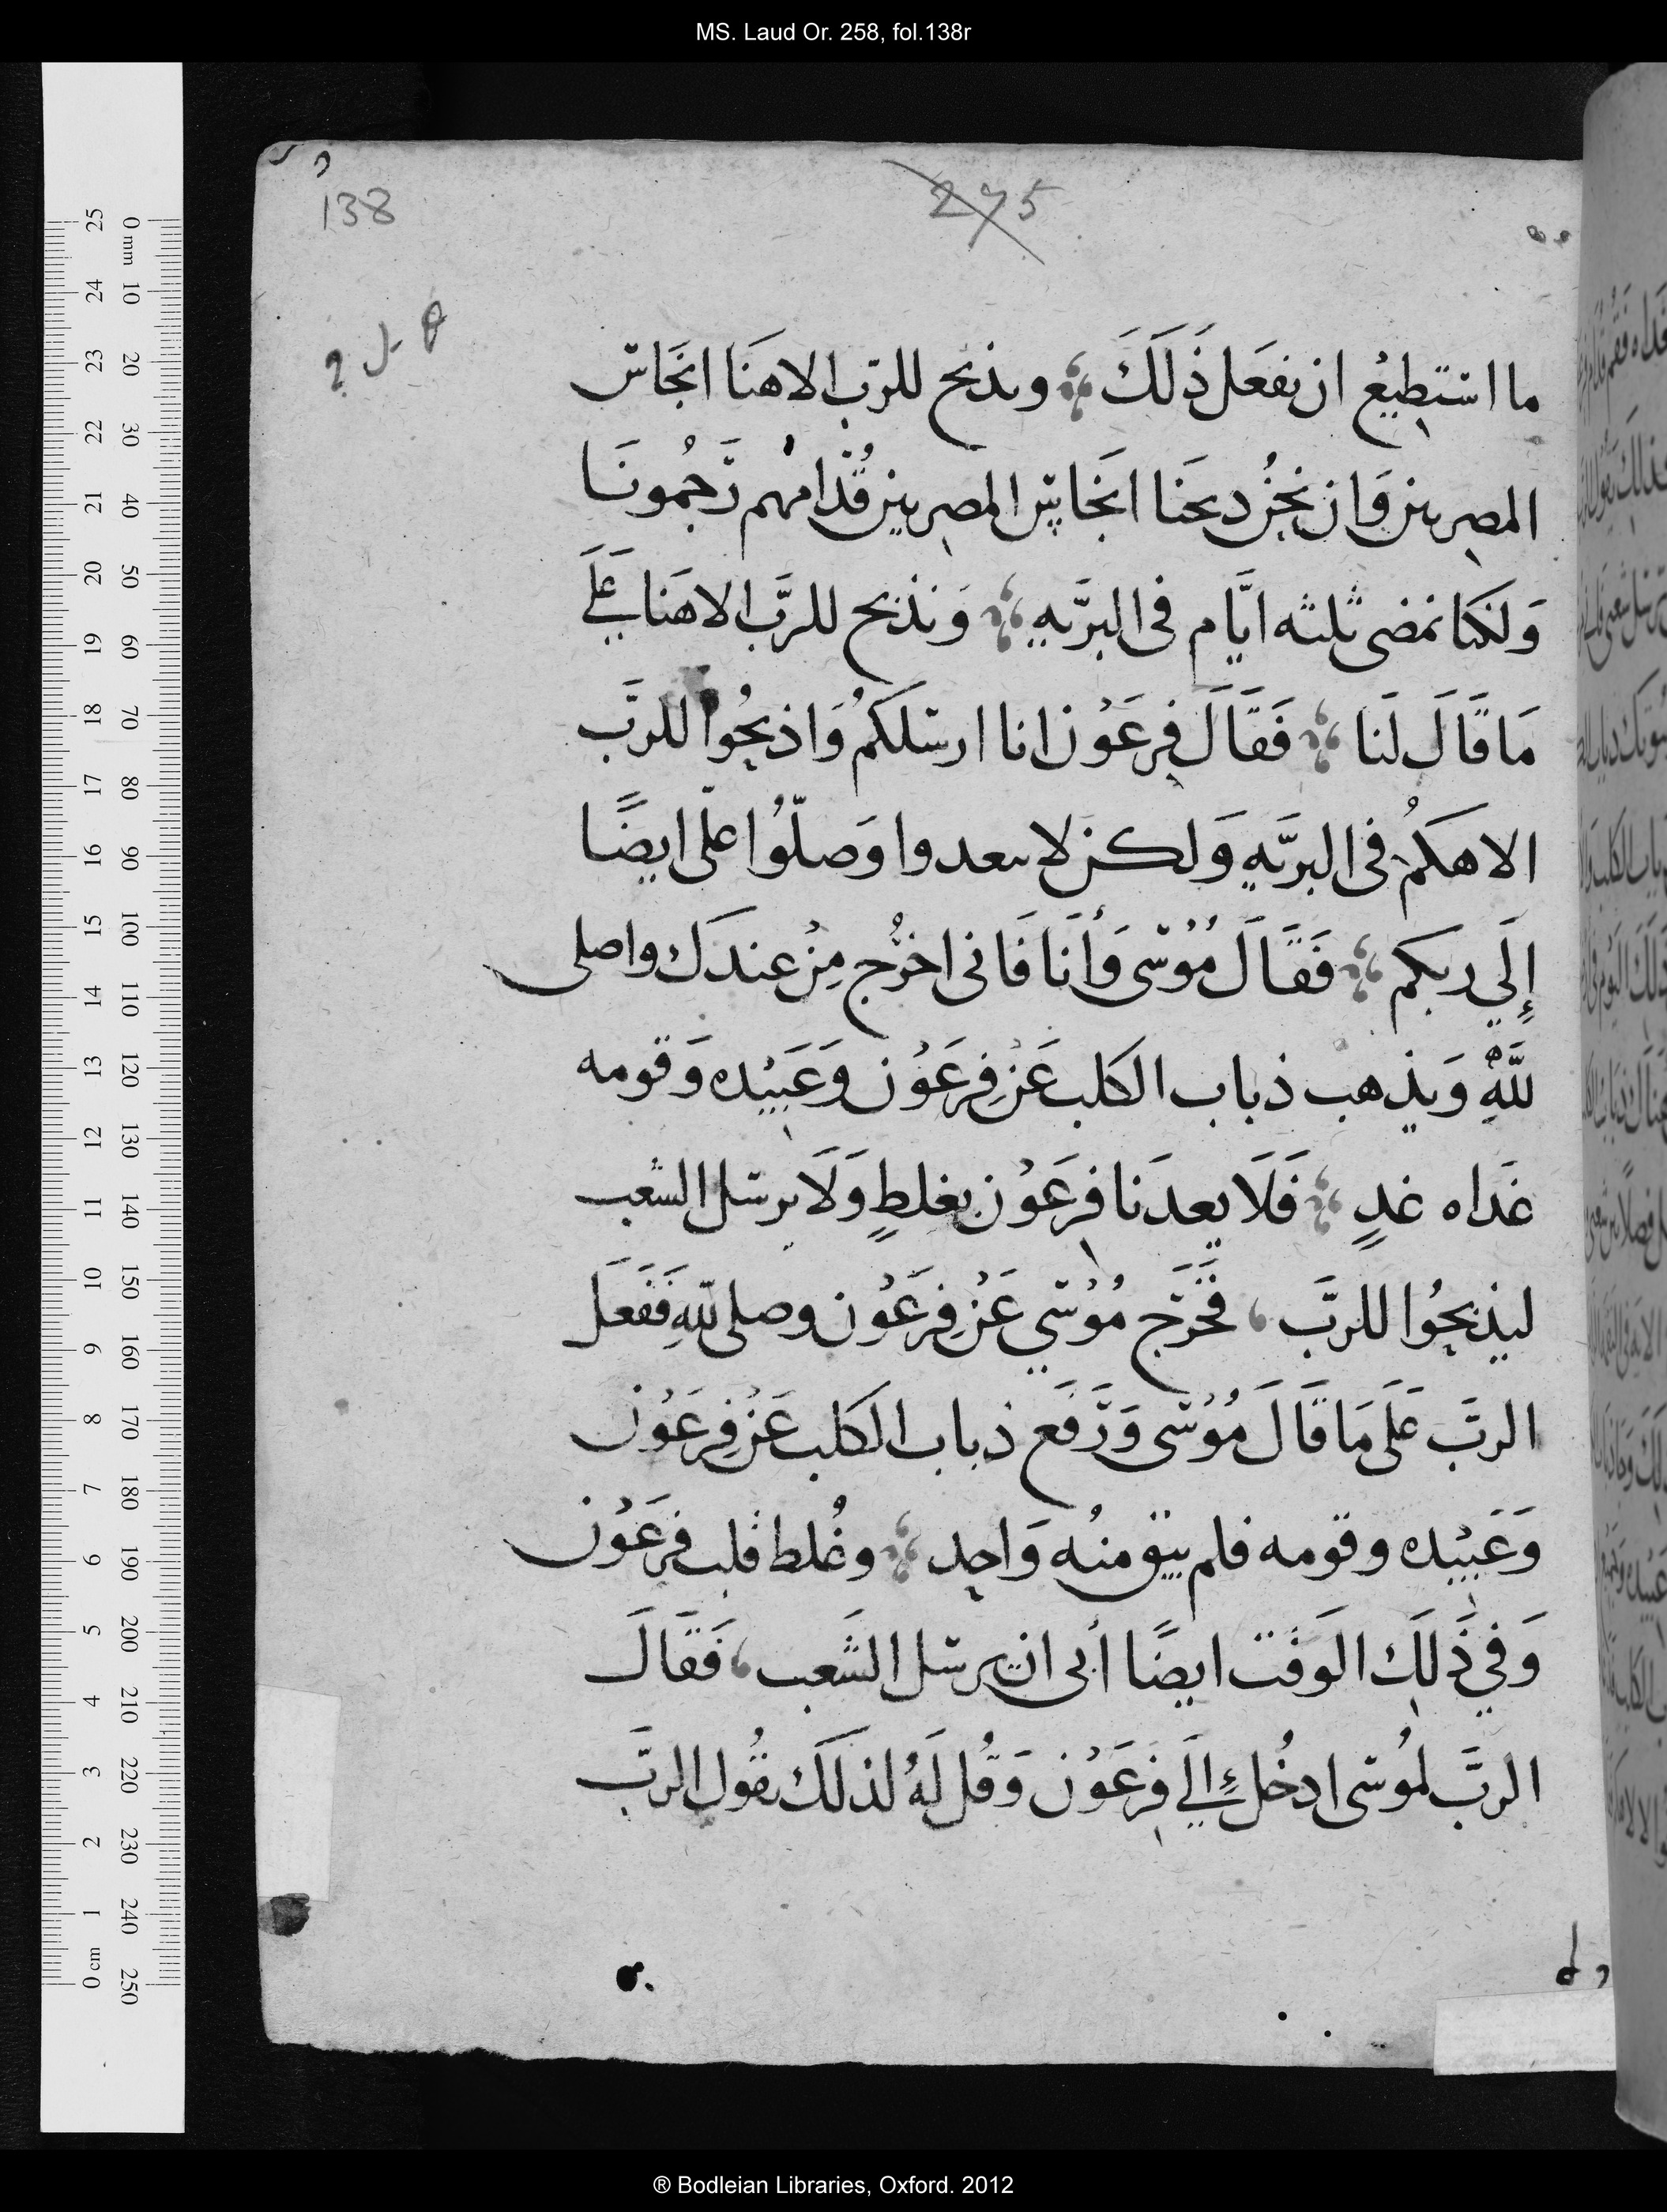 MS. Laud Or. 258, fol.138r
138
275
ما استطيع ان نفعَل ذَلَكَ ونذبح للرّب الاهنَا انجَاسَ
المصريين وَان نحنُ ذبحنا انجَاسِ المصريين قُدّامهم رَجمُونَا
وَلكنا نمضى ثلثه ايَّام فى البرّيهِ وَنذبح للرَّب الاهَنا عَلَى
مَا قَالَ لَنا فَقَالَ فِرعَوْن انا ارسلكمُ وَاذبِحُوا للربَّ
الاهكمُ فى البريَّهِ وَلكن لا تبعدوا وَصلّوُا علىّ ايضًا
إِلَي ربكم فَقَالَ مُوْسَى وَأنَا فَانى اخرُج مِنْ عندَك واصلى
للَّهِ وَيذهب ذباب الكلب عَنْ فِرعَوْن وَعَبِيْده وَقومه
غَداه غدٍ فَلَا يعدَنا فِرعَوْن بغلطٍ وَلَا يرسَل الشعب
ليذبحُوا للربَّ فَخَرَج مُوْسَي عَنْ فِرعَوْن وصلى للّهِ فَفَعَل
الربَّ عَلَى مَا قَالَ مُوْسَى وَرَفَع ذباب الكلب عَنْ فِرعَوْن
وَعَبِيْده وقومه فلم يبق منُه وَاحِد وغُلظ قلب فِرعَوْن
وَفي ذَلِك الوَقت ايضًا أبى ان يرسَل الشَعب فَقَالَ
الربَّ لمُوسَى ادخُل إِلَي فِرعَوْن وَقُل لَهُ لذلَك يقُول الربَّ
25 24 23 22 21 20 19 18 17 16 15 14 13 12 11 10 9 8 7 6 5 4 3 2 1 0 cm
0 mm 10 20 30 40 50 60 70 80 90 100 110 120 130 140 150 160 170 180 190 200 210 220 230 240 250
® Bodleian Libraries, Oxford. 2012